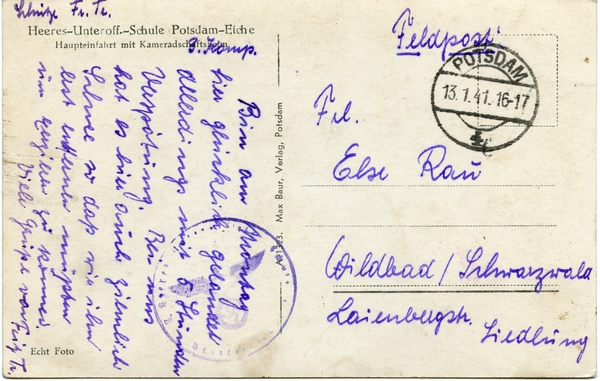 Schütze Fr. Tr.
Heeres-Unteroff.-Schule Potsdam-Eiche
Haupteinfahrt mit Kameradschaftsheim
3. Komp.
Bin am Montag
hier glücklich gelandet
allerdings mit 5 Stunden
Verspätung. Bei uns
hat es hier auch ziemlich
Schnee so daß wir ihn
erst entfernen mußten
um zu können
Viele Grüße von Fritz Tr.
Echt Foto
Max Baur, Verlag, Potsdam
Feldpost
POTSDAM
13.1.41.16-17
Frl.
Else Rau
Wildbad / Schwarzwald
Laienbergstr.
Siedlung